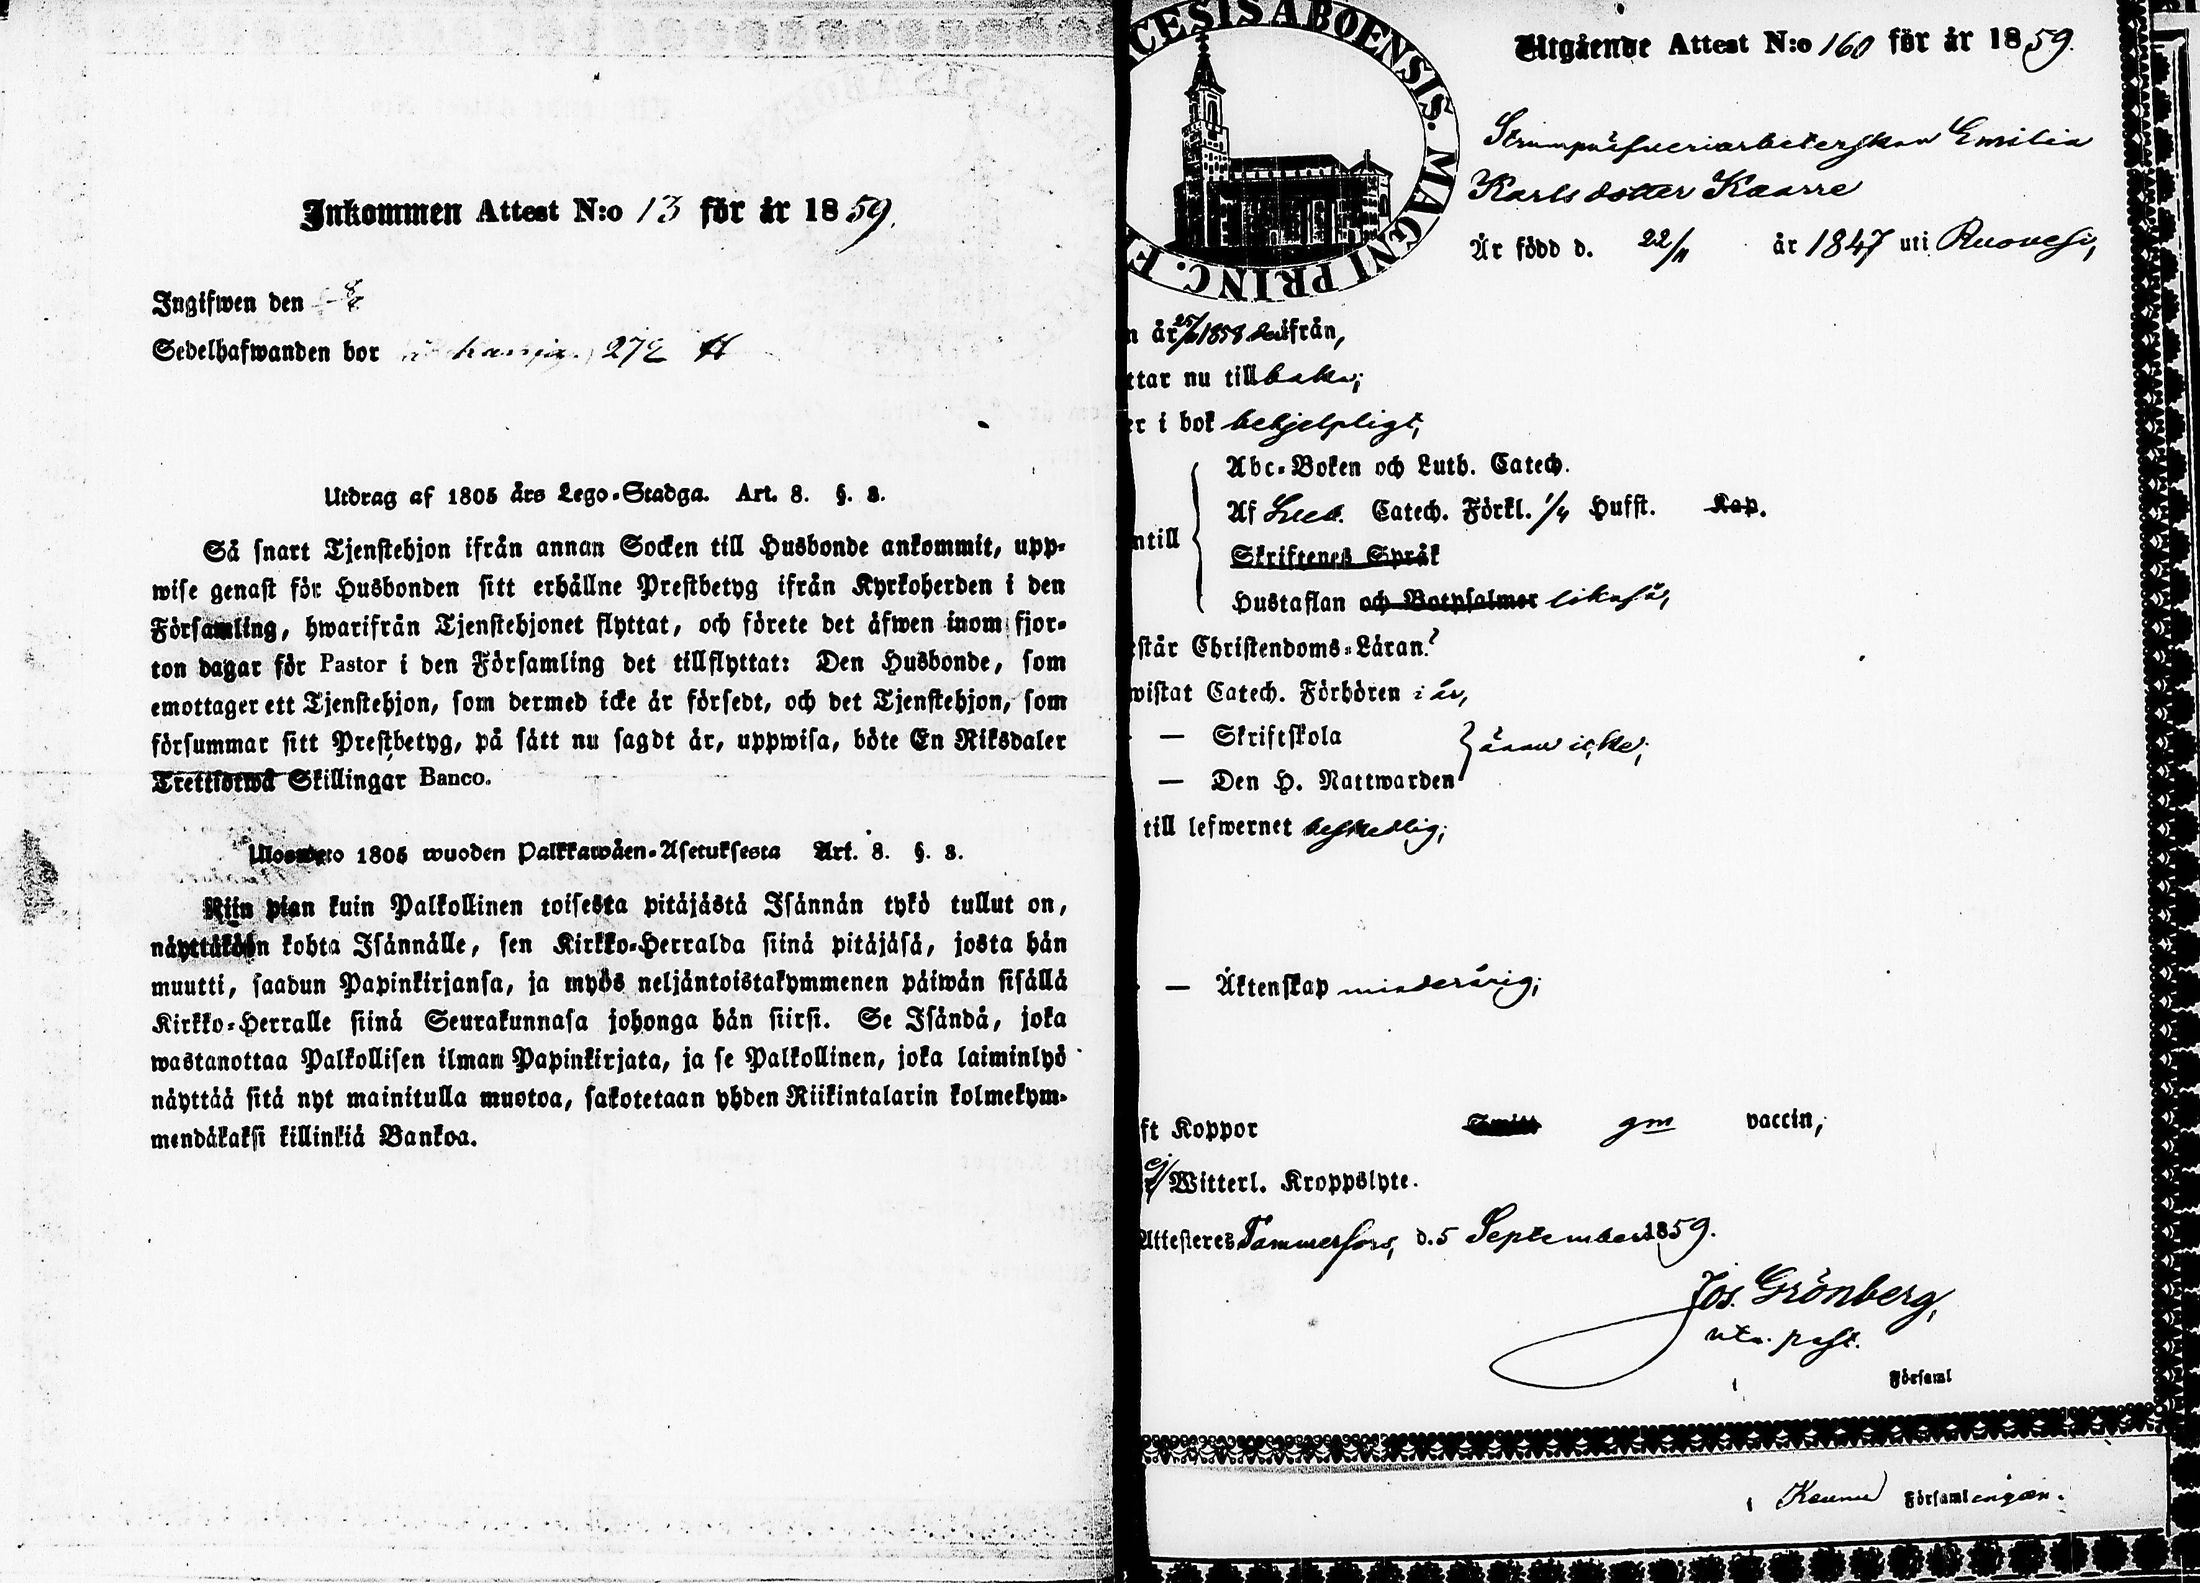 Inkommen Attest N:o 13 för år 1859.
Ingifwen den
Sedelhafwanden bor 272
Utdrag af 1805 års Lego-Stadga. Art. 8. §. 8.
Så snart Tjenstehjon ifrån annan Socken till Husbonde ankommit, upp-
wise genast för Husbonden sitt erhållne Prestbetyg ifrån Kyrkoherden i den
Församling, hwarifrån Tjenstehjonet flyttat, och förete det äfwen inom fjor-
ton dagar för Pastor i den Församling det tillflyttat: Den Husbonde, som
emottager ett Tjenstehjon, som dermed icke är försedt, och det Tjenstehjon, som
försummar sitt Prestbetyg, på sätt nu sagdt är, uppwisa, böte En Riksdaler
Trettiotwå Skillingar Banco.
Ulosweto 1805 wuoden Palkkawäen-Asetuksesta Art. 8. §. 8.
Niin pian kuin Palkollinen toisesta pitäjästä Isännän tykö tullut on,
näyttäköön kohta Isännälle, sen Kirkko-Herralda siinä pitäjäsä, josta hän
muutti, saadun Papinkirjansa, ja myös neljäntoistakymmenen päiwän sisällä
Kirkko-Herralle siinä Seurakunnasa johonga hän siirsi. Se Isändä, joka
wastanottaa Palkollisen ilman Papinkirjata, ja se Palkollinen, joka laiminlyö
näyttää sitä nyt mainitulla muotoa, sakotetaan yhden Riikintalarin kolmekym-
mendäkaksi killinkiä Bankoa.
CESIS ABOENSIS. MAGNI PRINC. F
Utgående Attest N:o 160 för år 1859.
Strumpväfveriarbeterskan Emilia
Karlsdotter Kaarre
Är född d. 22/11 år 1847 uti Ruovesi,
n år 1858 ifrån,
ttar nu tillbaka;
er i bok behjelpligt,
Abc-Boken och Luth. Catech.
ntill Af Catech. Förkl. 1/4 Hufst. Kap.
Skriftenes Språk
Hustaflan och Botpsalmer likaså,
estår Christendoms-Läran?
wistat Catech. Förhören i år,
— Skriftskola
ännu icke;
— Den H. Nattwarden
till lefwernet beskedlig;
— Äktenskap minderårig;
ft Koppor gm vaccin,
ej Witterl. Kroppslyte.
Attesteres Tammerfors, d. 5 September 1859.
Jos. Grönberg,
past.
Församl
i Församlingen.